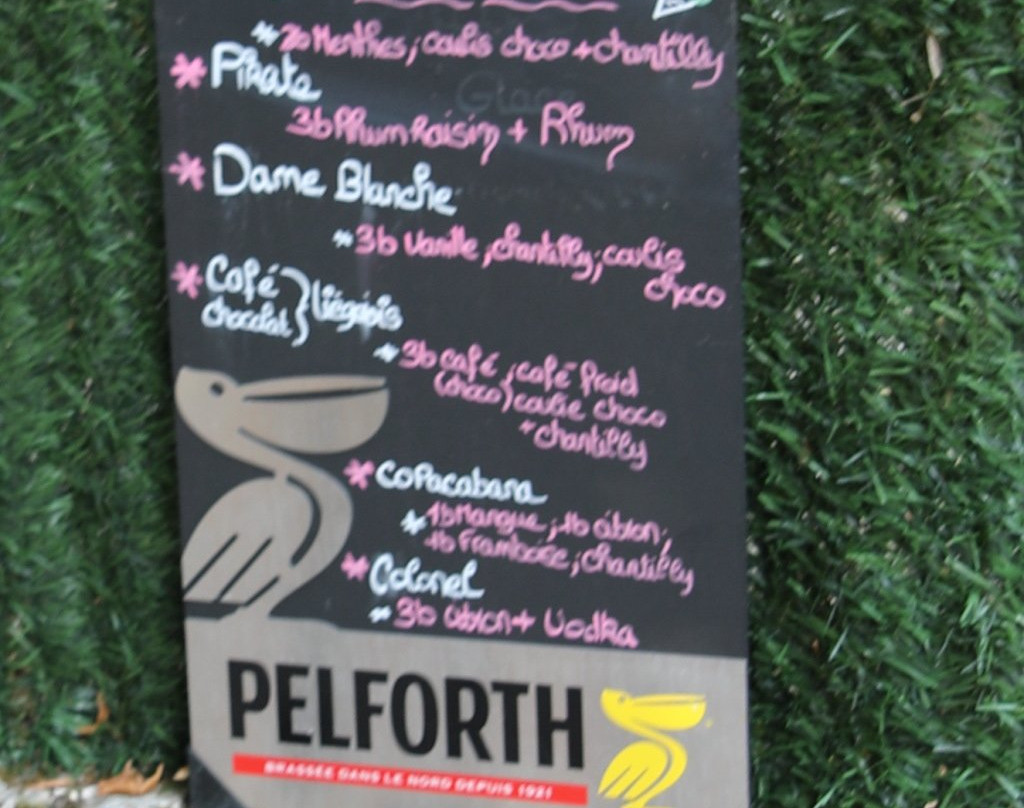 * 3b Menthes, coulis choco + chantilly
* Pirate
3b Rhum Raisin + Rhum
* Dame Blanche
* 3b Vanille, chantilly, coulis
choco
* Café } liégeois
chocolat
* 3b café, café froid
(choco) coulie choco
+ chantilly
* Copacabana
* 1b Mangue, 1b citron,
1b Framboise, chantilly
* Colonel
* 3b citron + Vodka
PELFORTH
BRASSÉE DANS LE NORD DEPUIS 1921